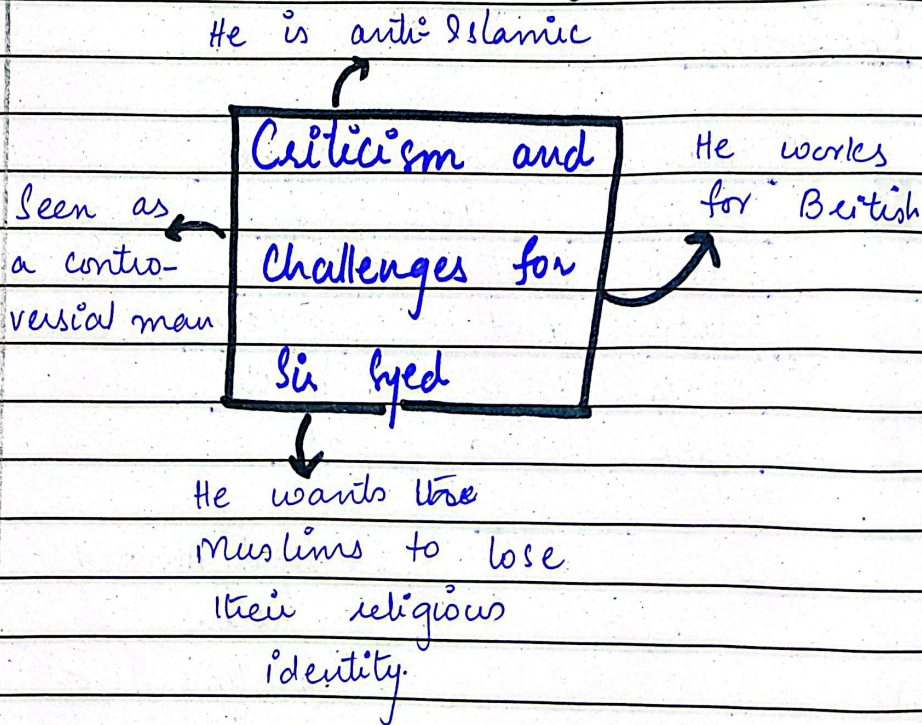 He is anti-Islamic
Criticism and
Challenges for
Sir Syed
He works
for British
Seen as
a contro-
versial man
He wants
Muslims to lose
their religious
identity.